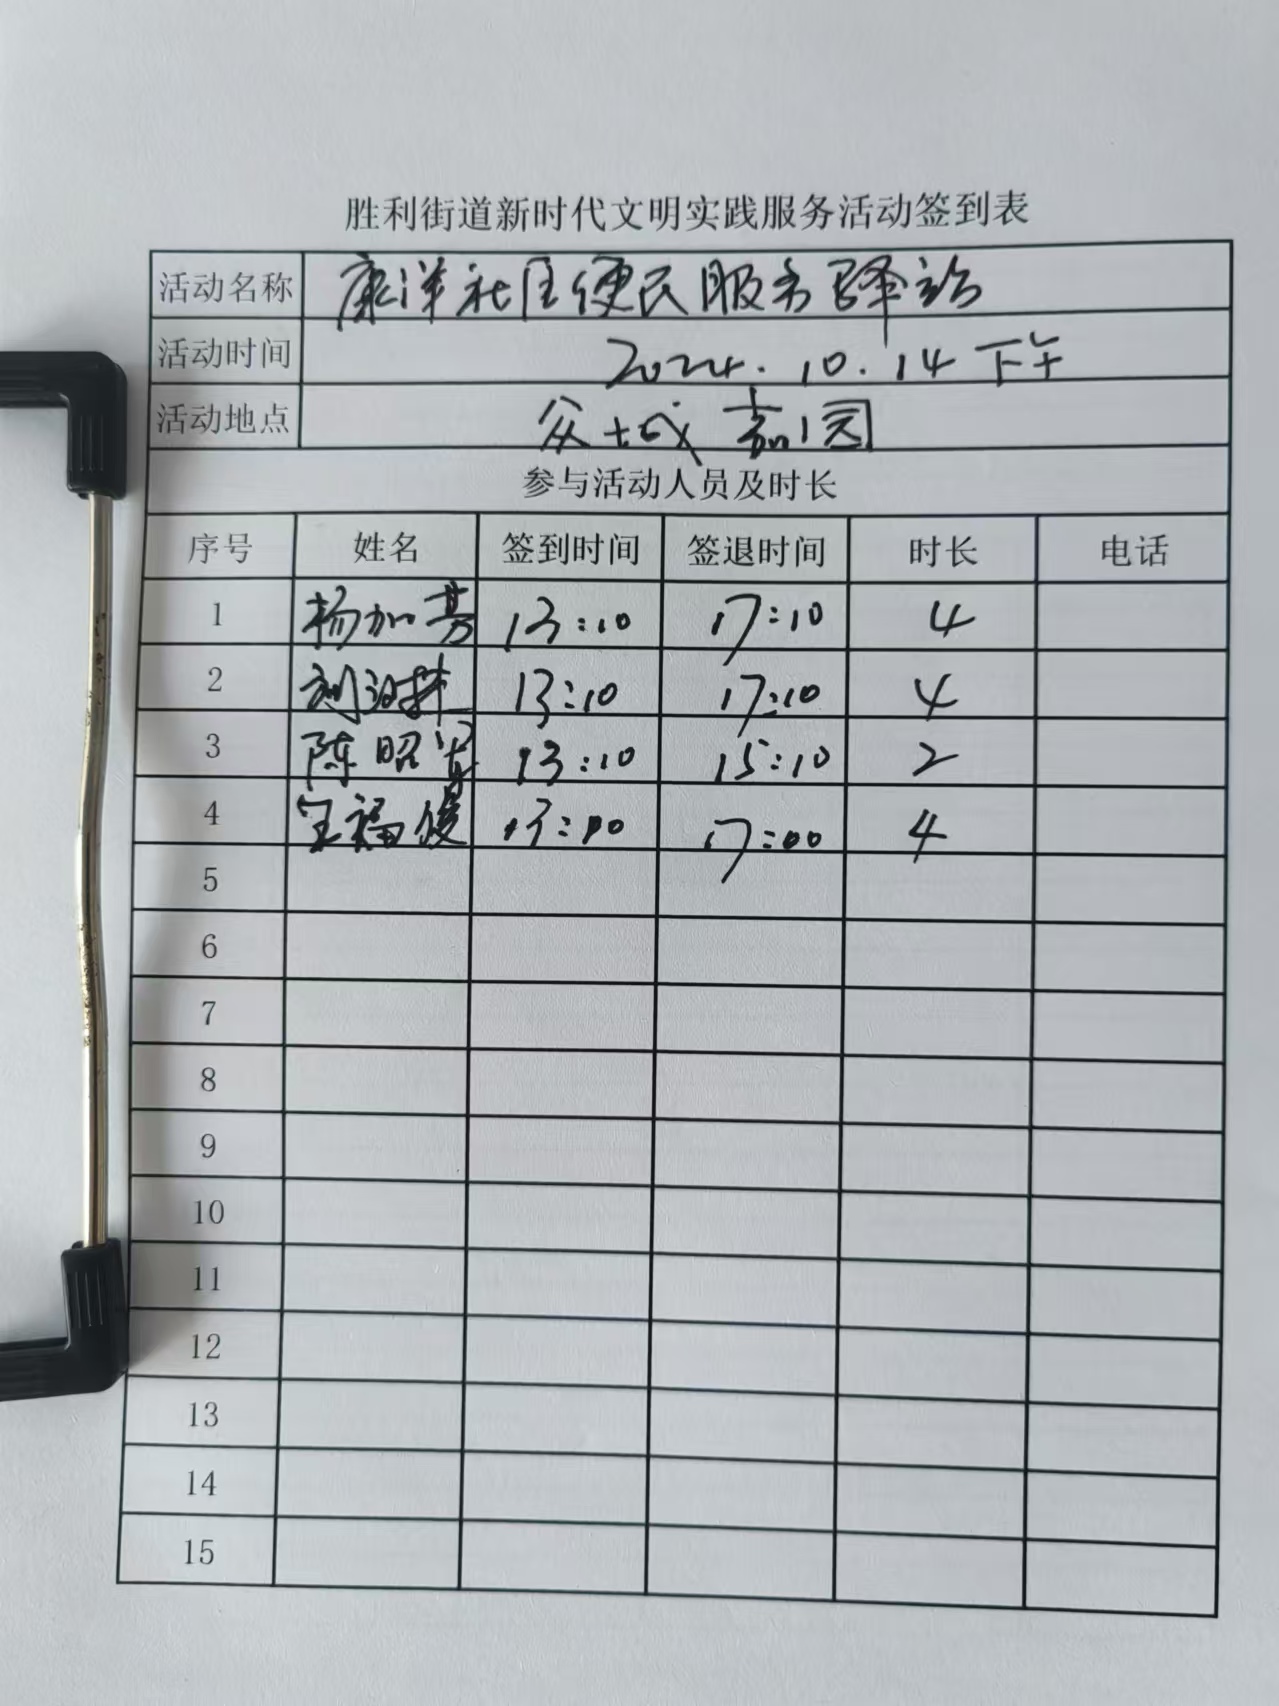 胜利街道新时代文明实践服务活动签到表
活动名称 康洋社区便民服务驿站
活动时间 2024.10.14 下午
活动地点 众城嘉园
参与活动人员及时长
序号 姓名 签到时间 签退时间 时长 电话
1 杨加芳 13:10 17:10 4
2 刘 13:10 17:10 4
3 陈昭 13:10 15:10 2
4 王福俊 13:00 17:00 4
5
6
7
8
9
10
11
12
13
14
15